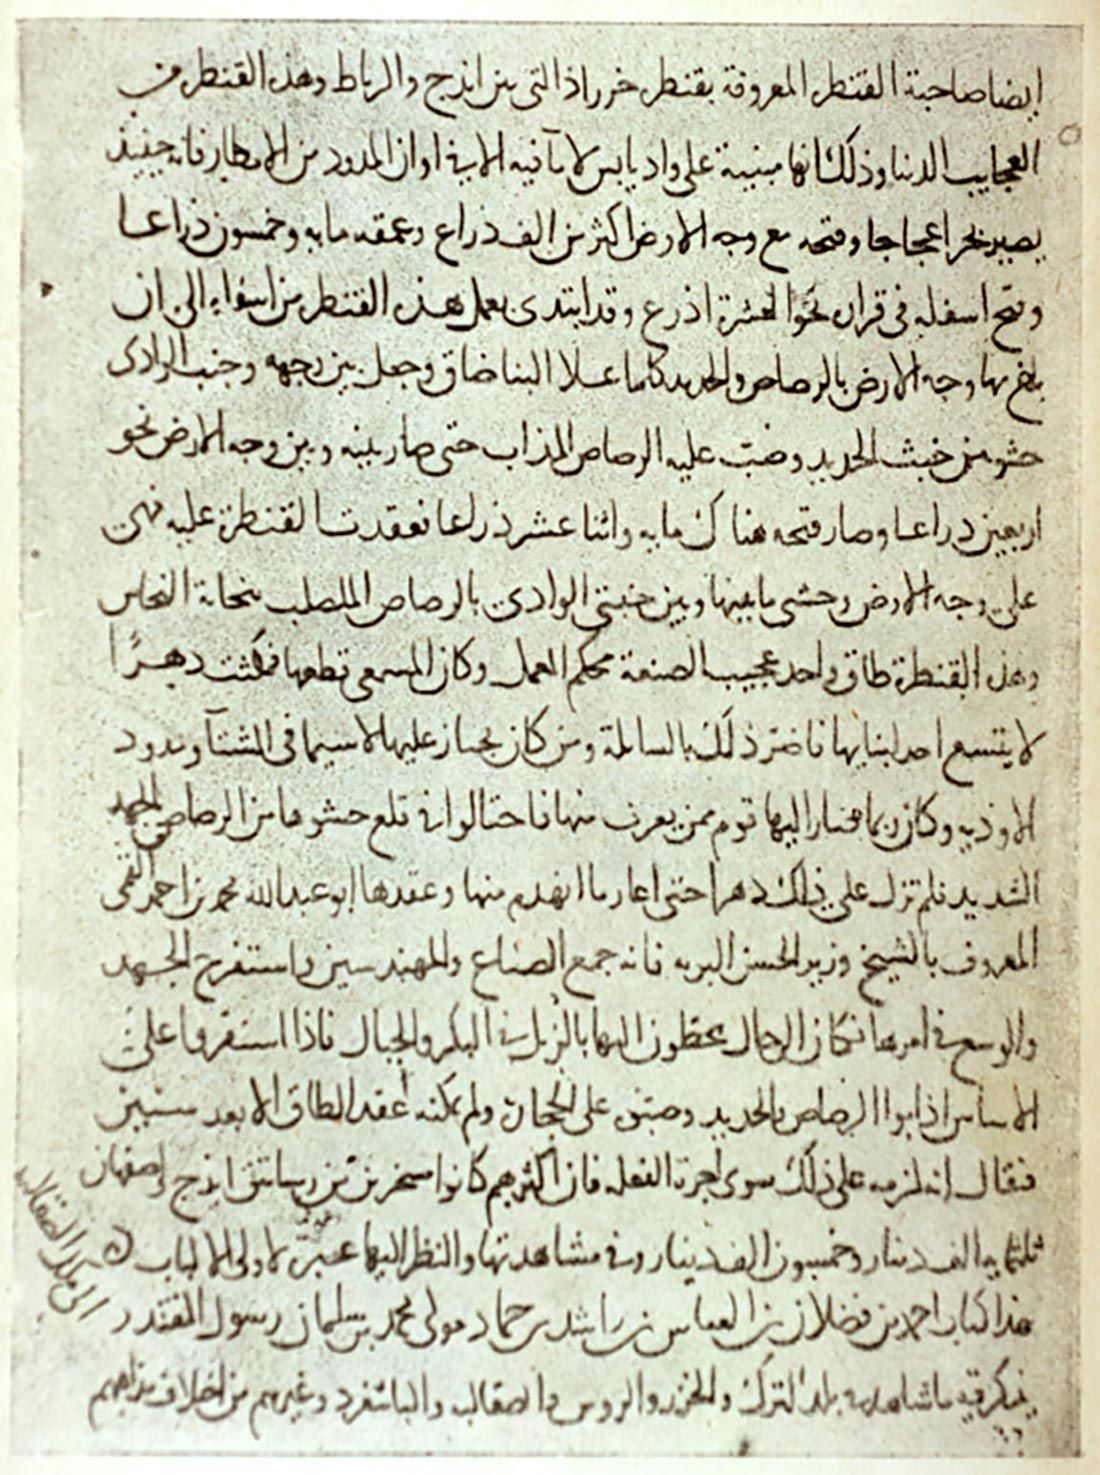 ايضا صاحبة القنطرة المعروفة بقنطرة خرراذ التي بين ايذج والرباط وهذه القنطرة من
العجايب الدنيا وذلك انها مبنية على واد يابس لا مآ فيه الا في اوان المدود من الامطار فانه حينيذ
يصير بحرا عجاجا وفتحه مع وجه الارض اكثر من الف ذراع وعمقه مايه وخمسون ذراعا
وفتح اسفله في قراره نحو العشرة اذرع وقد ابتدى بعمل هذه القنطرة من اسفله الى ان
بلغ بها وجه الارض بالرصاص والحديد كلما علا البنا ضاق وجعل بين وجهه وجنب الوادي
حشو من خبث الحديد وصب عليه الرصاص المذاب حتى صار بينه وبين وجه الارض نحو
اربعين دراعا وصار فتحه هناك مايه واثنا عشر ذراعا فعقدت القنطرة عليه فهى
على وجه الارض وحشى ما بينها وبين جنبتي الوادي بالرصاص المصلب بنحاتة النحاس
وهذه القنطرة طاق واحد عجيب الصنعة محكم العمل وكان المسمعى قطعها فمكثت دهرًا
لا يتسع احد لبنايها فاضر ذلك بالسابلة ومن كان يجتاز عليها لا سيما في الشتآ ومدود
الاوديه وكان ربما صار اليها قوم ممن يقرب منها فاحتالوا في قلع حشوها من الرصاص بالجهد
الشديد فلم تزل على ذلك دهرا حتى اعاد ما انهدم منها وعقدها ابو عبد الله محمد بن احمد القمى
المعروف بالشيخ وزير الحسن البويه فانه جمع الصناع والمهندسين واستفرغ الجهد
والوسع في امرها فكان الرجال يحطون اليها بالزبل في البكر والحبال فاذا استقروا على
الاساس اذابوا الرصاص والحديد وصبوه على الحجارة ولم يمكنه عقد الطاق الا بعد سنين
فيقال انه لزمه على ذلك سوى اجرة الفعلة فان اكثرهم كانوا مسخرين من رساتيق ايذج واصفهان
ثلثماية الف دينار وخمسون الف دينار وفي مشاهدتها والنظر اليها عبرة لاولى الالباب
هذا كتاب احمد بن فضلان بن العباس بن راشد بن حماد مولى محمد بن سليمان رسول المقتدر
الى ملك الصقالبه
يذكر فيه ما شاهده في بلد الترك والخزر والروس والصقالبه والباشغرد وغيرهم من اختلاف مذاهبهم